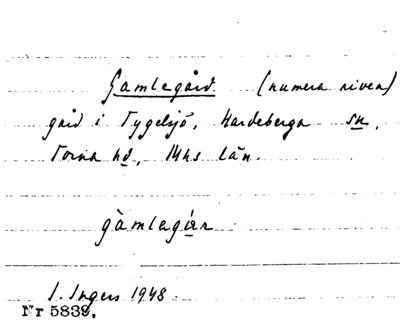 Gamlegård. (numera riven)
gård i Tygelsjö, Hardeberga sn,
Torna hd, Mhs län.
gàmlegá̱rn
I. Ingers 1948.
Nr 5839,